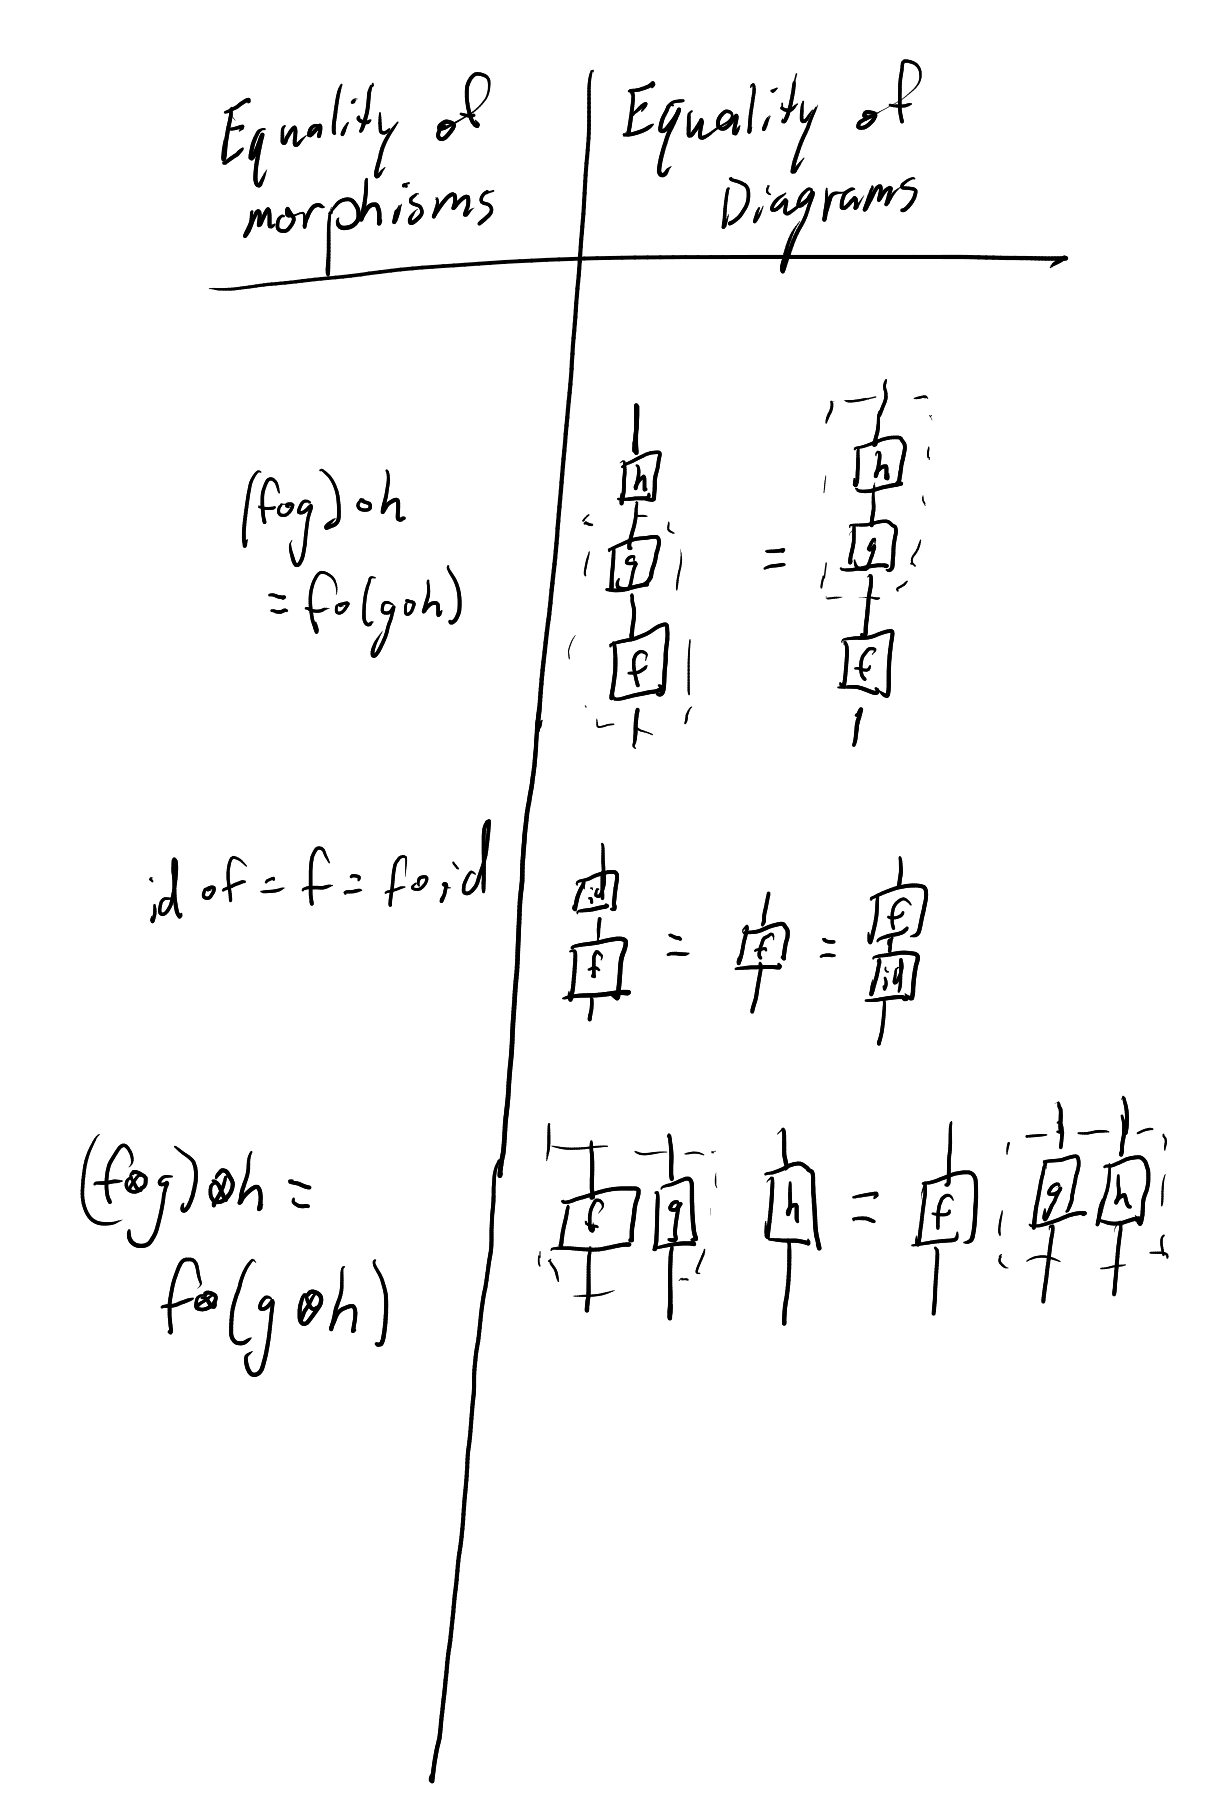 Equality of
morphisms
Equality of
Diagrams
(f∘g)∘h
= f∘(g∘h)
h
g
f
=
h
g
f
id∘f = f = f∘id
id
f
=
f
=
f
id
(f⊗g)⊗h =
f⊗(g⊗h)
f g h = f g h